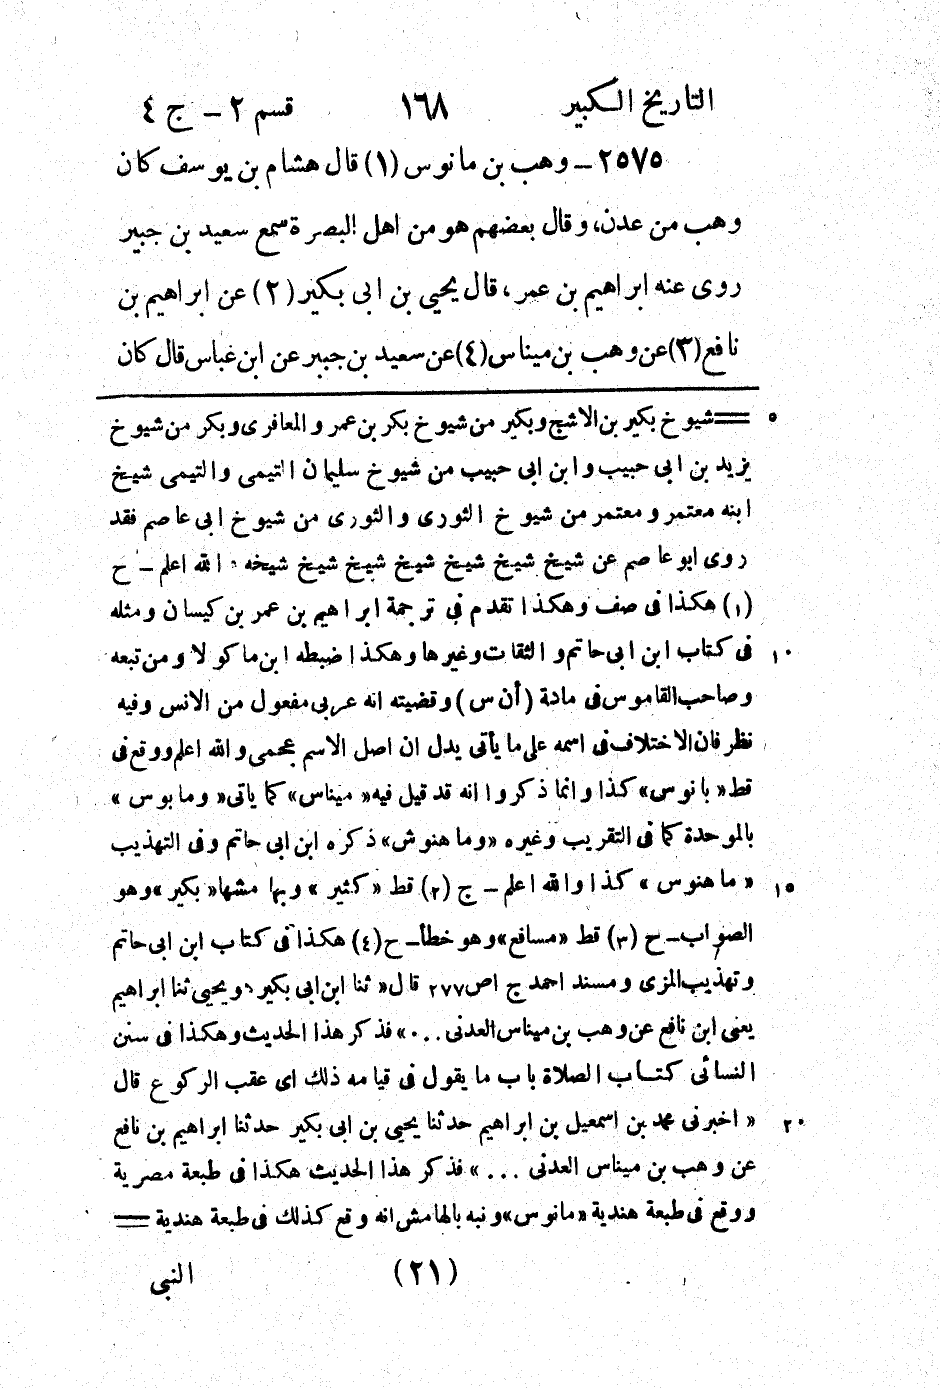 التاريخ الكبير ١٦٨ قسم ٢ – ج ٤
٢٥٧٥ – وهب بن مانوس (١) قال هشام بن يوسف كان
وهب من عدن، وقال بعضهم هو من اهل البصرة سمع سعيد بن جبير
روى عنه ابراهيم بن عمر، قال يحيى بن ابى بكير (٢) عن ابراهيم بن
نافع (٣) عن وهب بن ميناس (٤) عن سعيد بن جبير عن ابن عباس قال كان
= شيوخ بكير بن الاشج وبكير من شيوخ بكر بن عمر و المعافرى وبكر من شيوخ ٥
يزيد بن ابى حبيب وابن ابى حبيب من شيوخ سليمان التيمى والتيمى شيخ
ابنه معتمر ومعتمر من شيوخ الثورى والثورى من شيوخ ابى عاصم فقد
روى ابو عاصم عن شيخ شيخ شيخ شيخ شيخ شيخ شيخه، الله اعلم – ح
(١) هكذا فى صف وهكذا تقدم فى ترجمة ابراهيم بن عمر بن كيسان ومثله
فى كتاب ابن ابى حاتم والثقات وغيرها وهكذا ضبطه ابن ماكولا ومن تبعه ١٠
وصاحب القاموس فى مادة (أن س) وقضيته انه عربى مفعول من الانس وفيه
نظر فان الاختلاف فى اسمه على ما يأتى يدل ان اصل الاسم عجمى والله اعلم ووقع فى
قط «بانوس» كذا وانما ذكروا انه قد قيل فيه «ميناس» كما يأتى «ومابوس»
بالموحدة كما فى التقريب وغيره «وماهنوش» ذكره ابن ابى حاتم وفى التهذيب
«ماهنوس» كذا والله اعلم – ح (٢) قط «كثير» وبهامشها «بكير» وهو ١٥
الصواب – ح (٣) قط «مسافع» وهو خطأ – ح (٤) هكذا فى كتاب ابن ابى حاتم
وتهذيب المزى ومسند احمد ج ١ ص ٢٧٧ قال «ثنا ابن ابى بكير، ويحيى ثنا ابراهيم
يعنى ابن نافع عن وهب بن ميناس العدنى ...» فذكر هذا الحديث وهكذا فى سنن
النسائى كتاب الصلاة باب ما يقول فى قيامه ذلك اى عقب الركوع قال
«اخبرنى محمد بن اسمعيل بن ابراهيم حدثنا يحيى بن ابى بكير حدثنا ابراهيم بن نافع ٢٠
عن وهب بن ميناس العدنى ...» فذكر هذا الحديث هكذا فى طبعة مصرية
ووقع فى طبعة هندية «مانوس» ونبه بالهامش انه وقع كذلك فى طبعة هندية =
(٢١) النبى